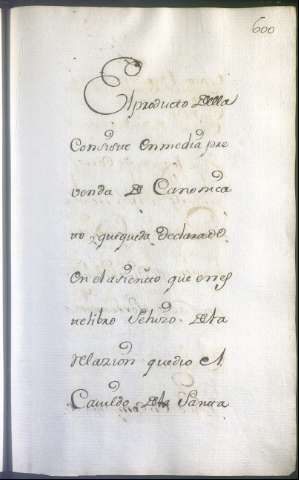 600
El producto della
Consiste en media pre
venda de Canonica
to, que queda declarado
en el asiento que en es
te libro se hizo de la
relazion que dio el
Cavildo de la Santa